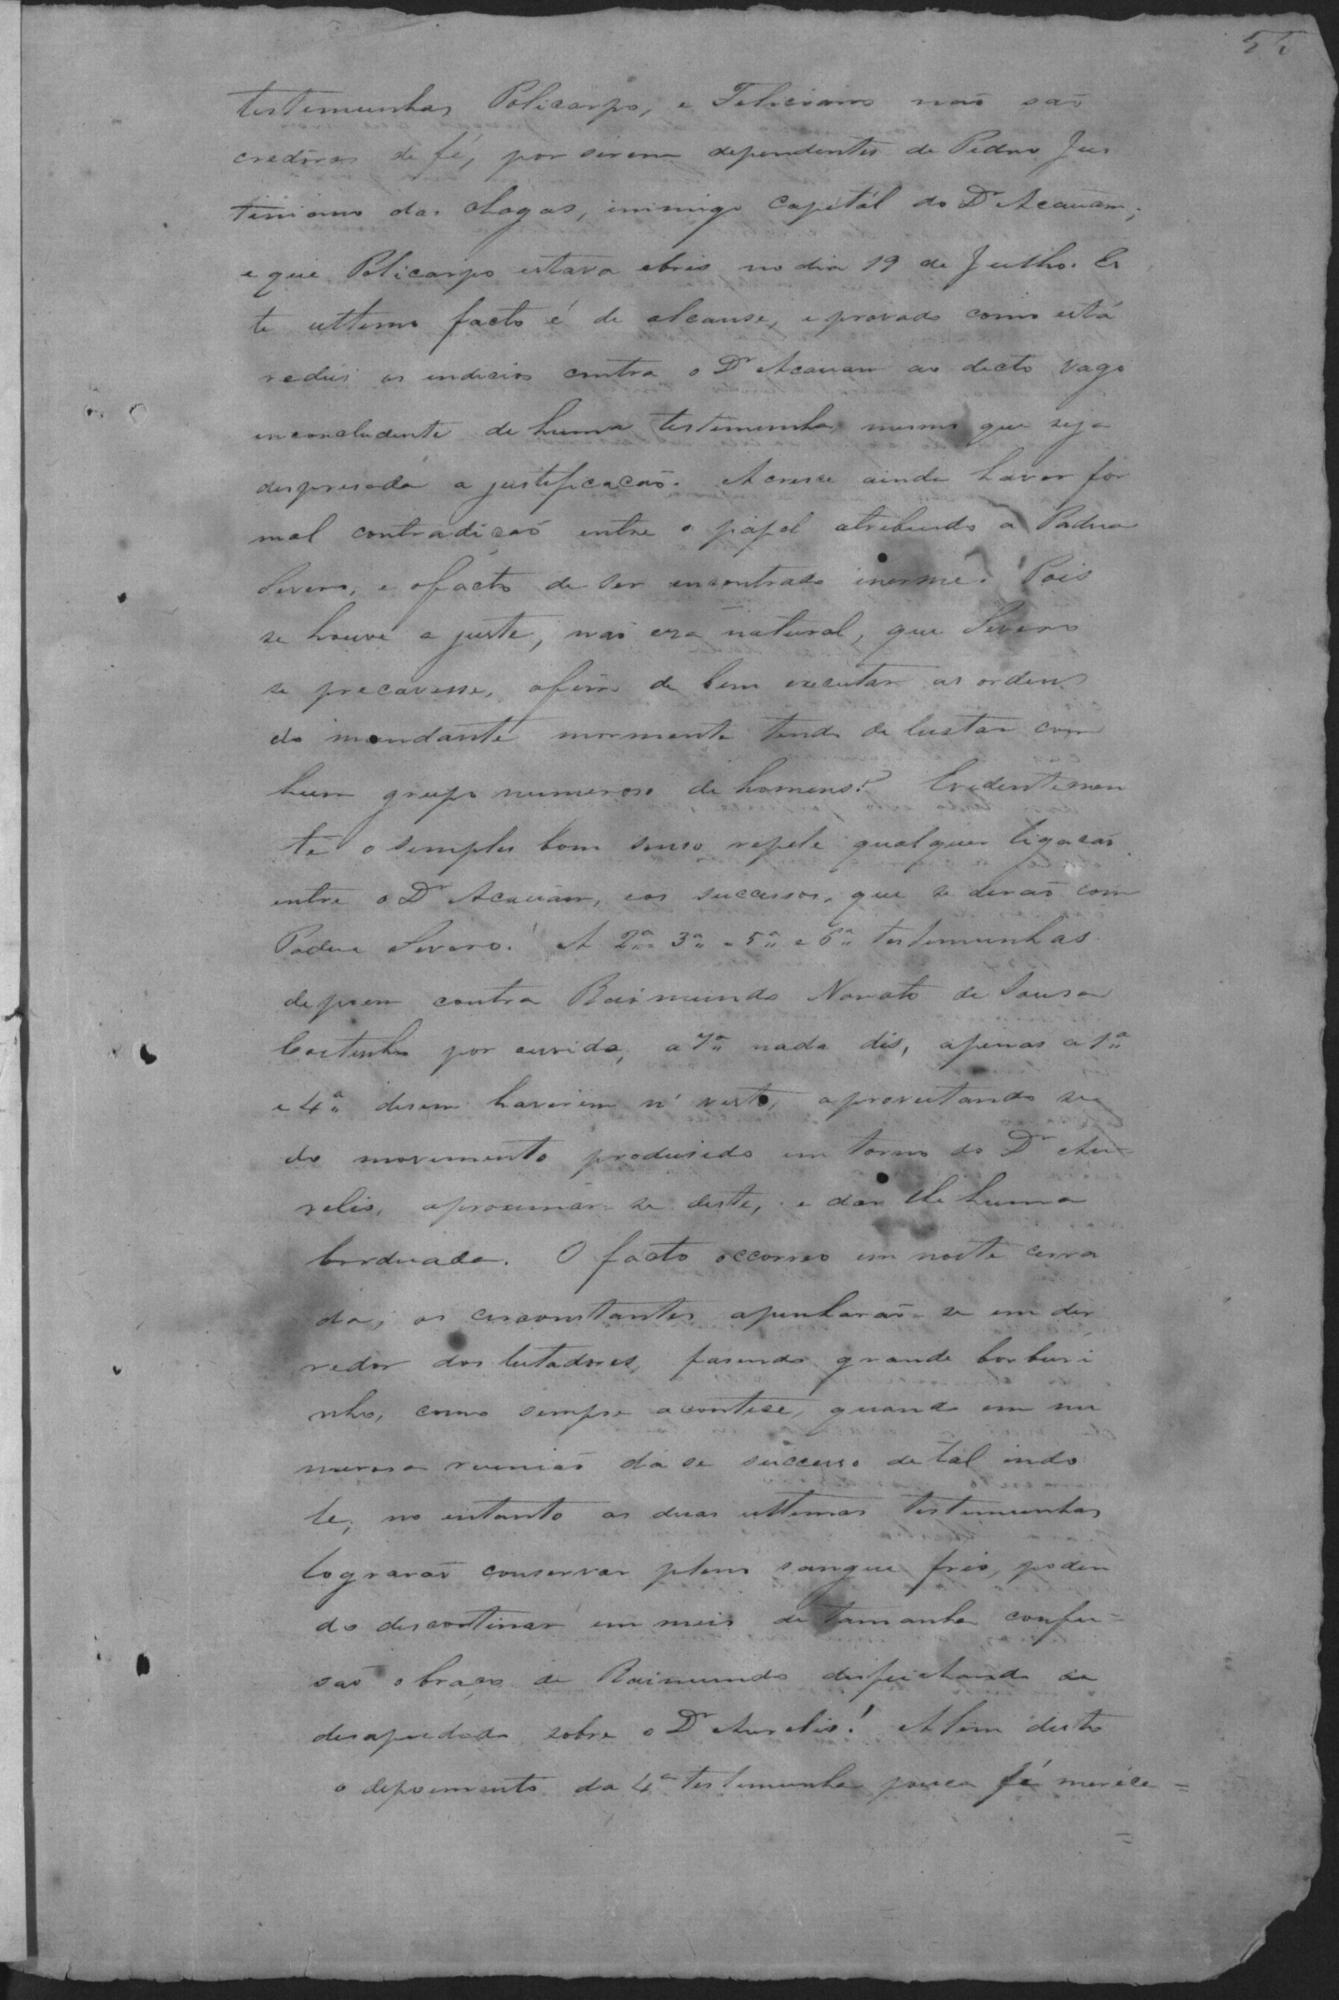 testemunhas Policarpo, e Feliciano naõ saõ
credôras de fé, por serem dependentes de Pedro Jus
tiniano das Chagas, inimigo capitál do Dr Acauam;
e que Policarpo estava ebrio no dia 19 de Julho. Es
te ultimo facto é de alcanse, e provado como está
redus os indicios contra o Dr Acauam ao dicto vago
inconcludente de huma testemunha, mesmo que seja
despresada a justificaçaõ. Acresce ainda haver for
mal contradiçaõ entre o papel atribuido a Padua
Severo, e o facto de ser encontrado inerme. Pois
se houve ajuste, naõ era natural, que Severo
se precavesse, afim de bem executar as ordens
do mandante mormente tendo de luctar com
hum grupo numeroso de homens? Evidentemen
te o simples bom senso repele qualquer ligaçaõ
entre o Dr Acauam, e os successos, que se deraõ com
Padua Severo. A 2ª 3ª e 5ª e 6ª testemunhas
depoem contra Raimundo Nonato de Sousa
Coutinho por ouvida, a 7ª nada dis, apenas a 1ª
e 4ª disem haverem n'o visto, aproveitando se
do movimento produsido em torno do Dr Au
relio, aproximar se deste, e dar lhe huma
bordoada. O facto occorreo em noite cerra
da, os circonstantes apinharaõ se em der
redor dos lutadores, fasendo grande borburi
nho, como sempre acontece, quando em nu
merosa reuniaõ dá se successo de tal indo
le, no entanto as duas ultimas testemunhas
lograraõ conservar pleno sangue frio, poden
do descortinar em meio de tamanha confu=
saõ o braço de Raimundo desfechando a
desapiedada sobre o Dr Aurelio! Alem disto
o depoimento da 4ª testemunha pouca fé meréce =